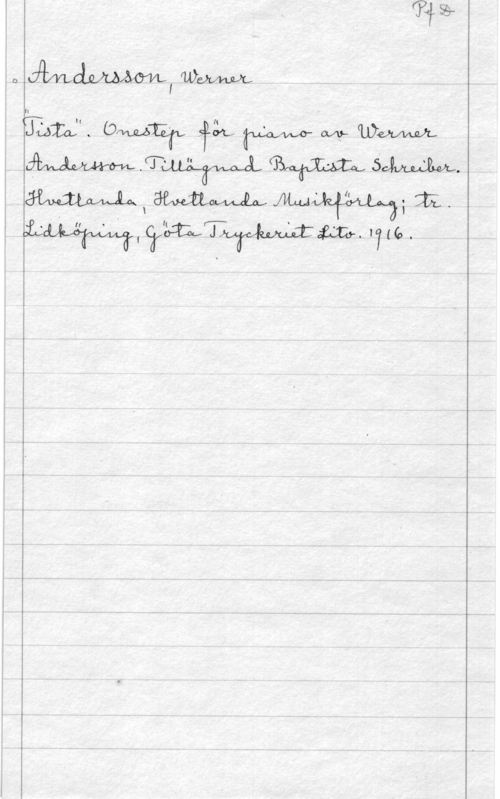 Pf D
Andersson, Werner
"Tista". Onestep för piano av Werner
Andersson. Tillägnad Baptista Schreiber.
Hvetlanda, Hvetlanda Musikförlag; tr.
Lidköping, Göta Tryckeriet Lito. 1916.